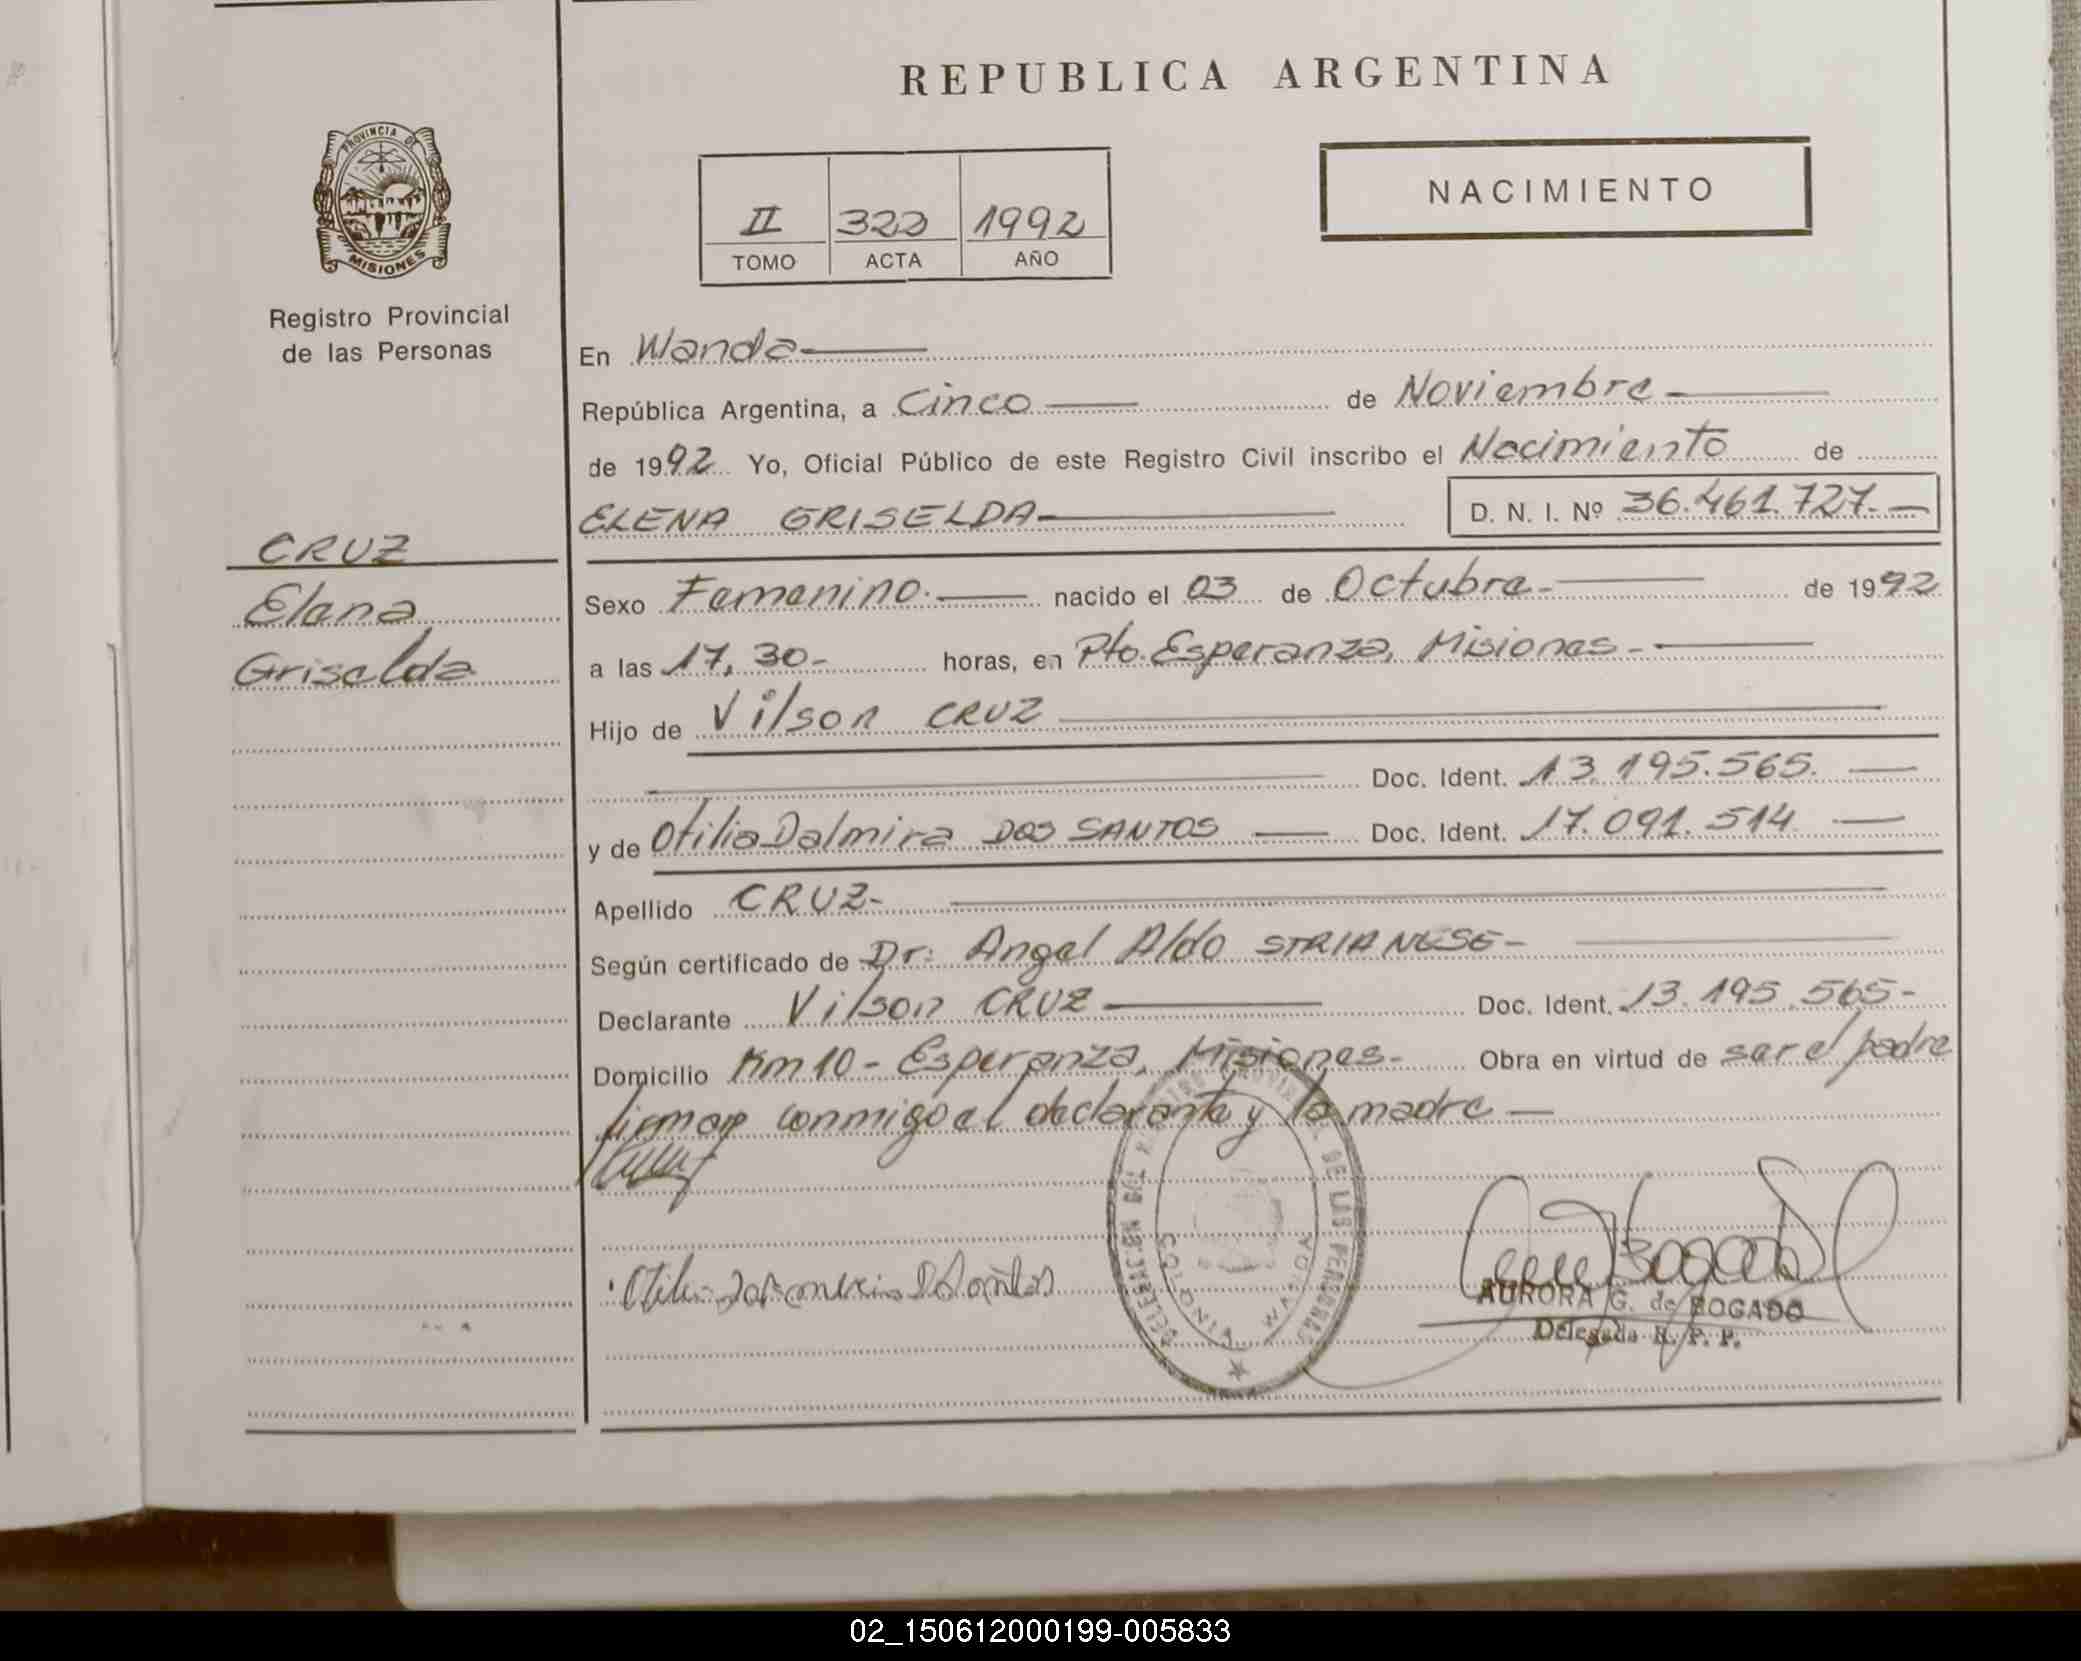 REPUBLICA ARGENTINA
PROVINCIA DE
MISIONES
Registro Provincial
de las Personas
II 322 1992
TOMO ACTA AÑO
NACIMIENTO
En Wanda
República Argentina, a Cinco de Noviembre
de 1992 Yo, Oficial Público de este Registro Civil inscribo el Nacimiento de
ELENA GRISELDA D. N. I. Nº 36.461.727.-
CRUZ
Elena
Griselda
Sexo Femenino.- nacido el 03 de Octubre- de 1992
a las 17,30- horas, en Pto. Esperanza, Misiones-
Hijo de Vilson CRUZ
Doc. Ident. 13.195.565.
y de Otilia Dalmira DOS SANTOS Doc. Ident. 17.091.514
Apellido CRUZ-
Según certificado de Dr: Angel Aldo STRIANESE-
Declarante Vilson CRUZ Doc. Ident. 13.195.565-
Domicilio Km 10 - Esperanza, Misiones- Obra en virtud de ser el padre
firman conmigo el declarante y la madre
DE LAS PERSONAS
WANDA
MISIONES
AURORA G. de BOGADO
Delegada R. P. P.
02_150612000199-005833